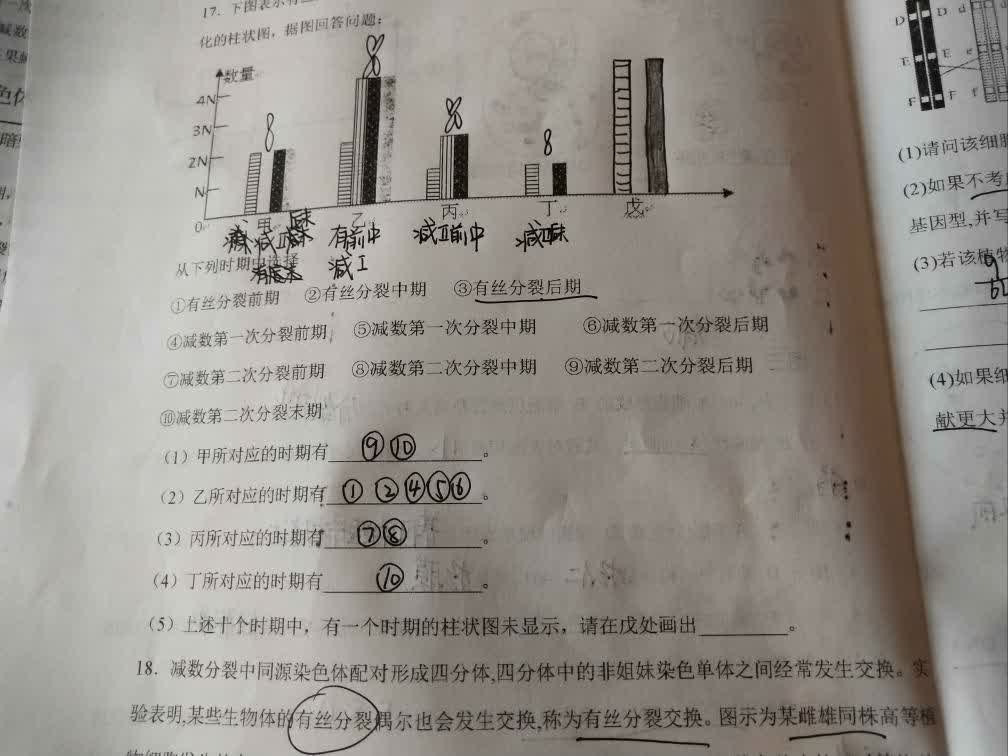 17. 下图表示
化的柱状图，据图回答问题：
数量
4N
3N
2N
N
0
甲 乙 丙 丁 戊
减Ⅱ末 有前中 减Ⅱ前中 减Ⅱ末
减Ⅰ
从下列时期中选择
①有丝分裂前期 ②有丝分裂中期 ③有丝分裂后期
④减数第一次分裂前期 ⑤减数第一次分裂中期 ⑥减数第一次分裂后期
⑦减数第二次分裂前期 ⑧减数第二次分裂中期 ⑨减数第二次分裂后期
⑩减数第二次分裂末期
（1）甲所对应的时期有 ⑨ ⑩ 。
（2）乙所对应的时期有 ① ② ④ ⑤ ⑥ 。
（3）丙所对应的时期有 ⑦ ⑧ 。
（4）丁所对应的时期有 ⑩ 。
（5）上述十个时期中，有一个时期的柱状图未显示，请在戊处画出________。
18. 减数分裂中同源染色体配对形成四分体,四分体中的非姐妹染色单体之间经常发生交换。实
验表明,某些生物体的有丝分裂偶尔也会发生交换,称为有丝分裂交换。图示为某雌雄同株高等植
D D d
E E e
F F f
(1)请问该细胞
(2)如果不考
基因型,并写
(3)若该植物
(4)如果细
献更大并